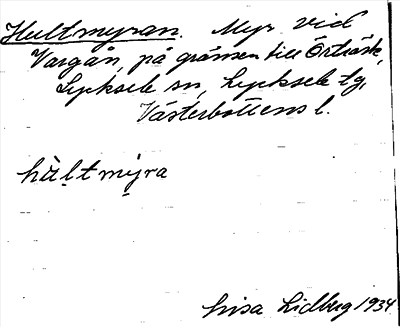 Hultmyran. Myr vid
Vargån, på gränsen till Örträsk,
Lycksele sn, Lycksele tg,
Västerbottens l.
hùl̥t mỳra
Lisa Lidberg 1934